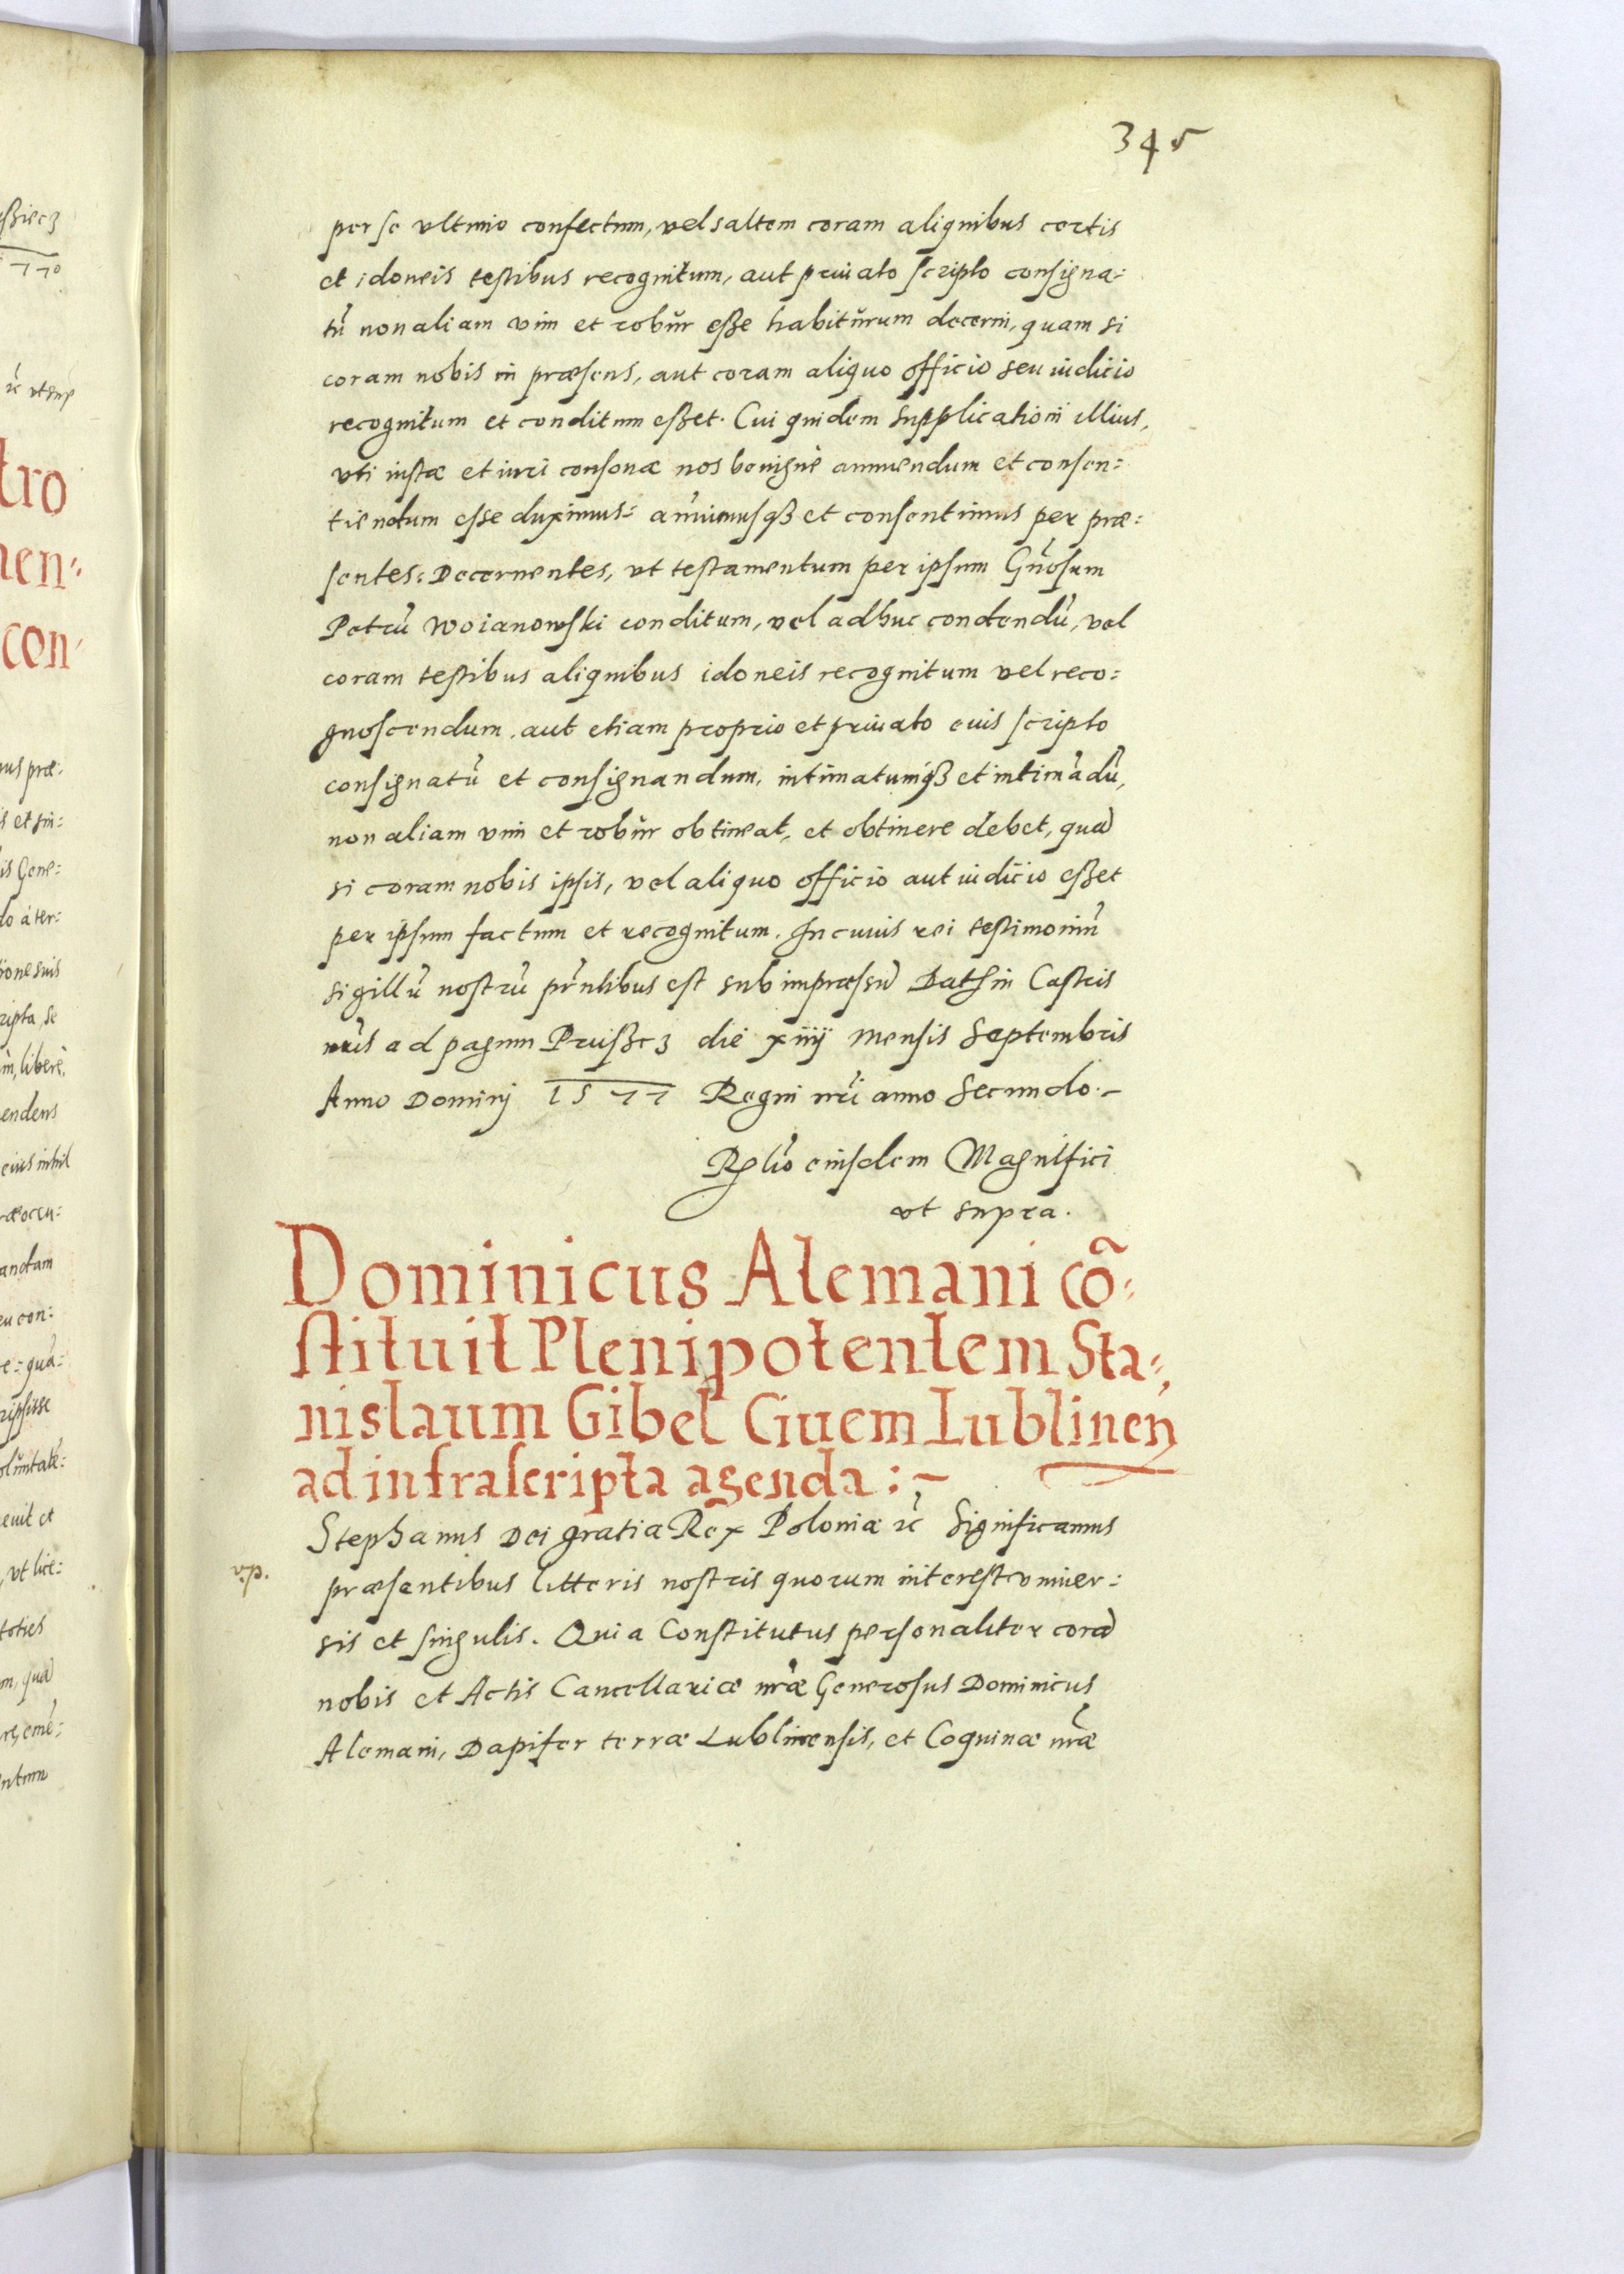 345
per se vltimo confectum, vel saltem coram aliquibus certis
et idoneis testibus recognitum, aut priuato scripto consigna:
tū non aliam vim et robur eße habiturum decerni, quam si
coram nobis in præsens, aut coram aliquo officio seu iudicio
recognitum et conditum eßet. Cui quidem supplicationi illius,
vti iustæ et iuri consonæ nos benignè annuendum et consen:
tiendum esse duximus: annuimusqȝ et consentimus per præ:
sentes: Decernentes, vt testamentum per ipsum Gn̄osum
Petrū Woianowski conditum, vel adhuc condendū, vel
coram testibus aliquibus idoneis recognitum vel reco:
gnoscendum, aut etiam proprio et priuato eius scripto
consignatū et consignandum, intimatumqȝ et intimādū,
non aliam vim et robur obtineat, et obtinere debet, quā
si coram nobis ipsis, vel aliquo officio aut iudicio eßet
per ipsum factum et recognitum. In cuius rei testimoniū
sigillū nostrū pr̄ntibus est subimpræssū Dat̃ in Castris
nr̄is ad pagum Prußcz die xiiij mensis Septembris
Anno Dominj 1577 Regni nr̄i anno Secundo.-
Rel̄io eiusdem Magnifici
vt supra.
Dominicus Alemani cō:
stituit Plenipotentem Sta:
nislaum Gibel Ciuem Lublinen̄
ad infrascripta agenda: -
Stephanus Dei gratia Rex Poloniæ ꝛc̄ Significamus
v.p.
præsentibus litteris nostris quorum interest vniuer:
sis et singulis. Quia Constitutus personaliter corā
nobis et Actis Cancellariæ nr̄æ Generosus Dominicus
Alemani, Dapifer terræ Lublinensis, et Coquinæ nr̄æ